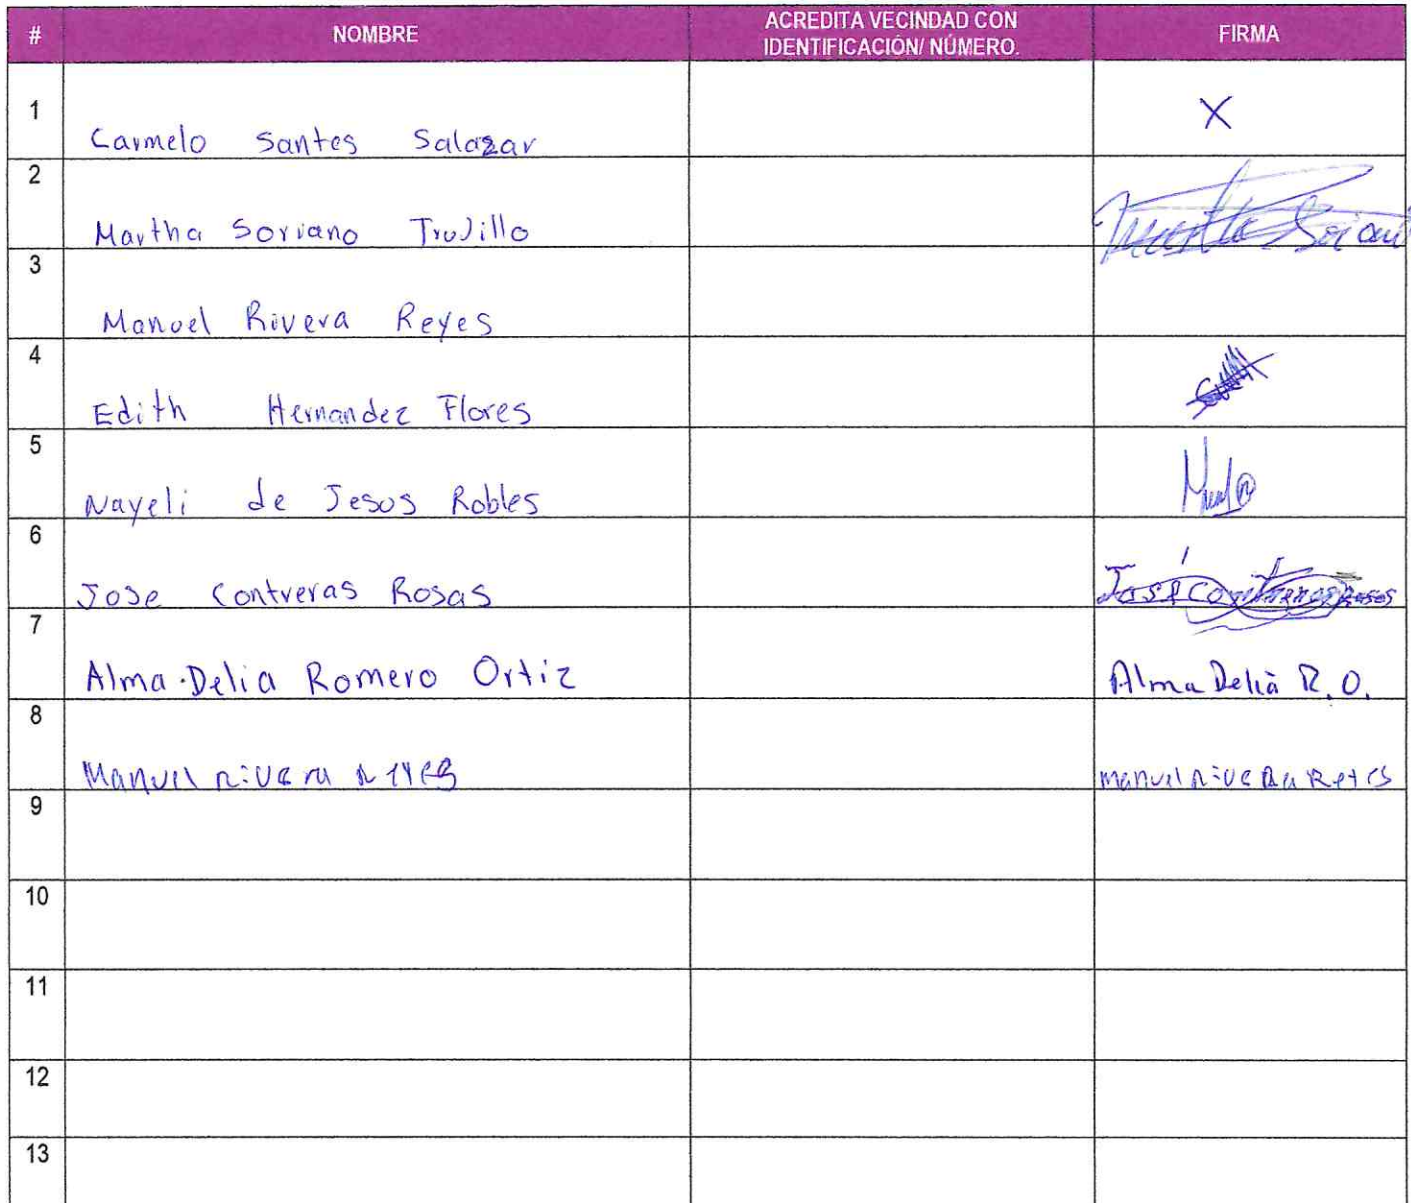 # NOMBRE ACREDITA VECINDAD CON IDENTIFICACIÓN/ NÚMERO. FIRMA
1 Carmelo Santes Salazar X
2 Martha Soriano Trujillo
3 Manuel Rivera Reyes
4 Edith Hernandez Flores
5 Nayeli de Jesus Robles
6 Jose Contreras Rosas José Contreras Rosas
7 Alma Delia Romero Ortiz Alma Delia R.O.
8 Manuel Rivera Reyes Manuel Rivera Reyes
9
10
11
12
13